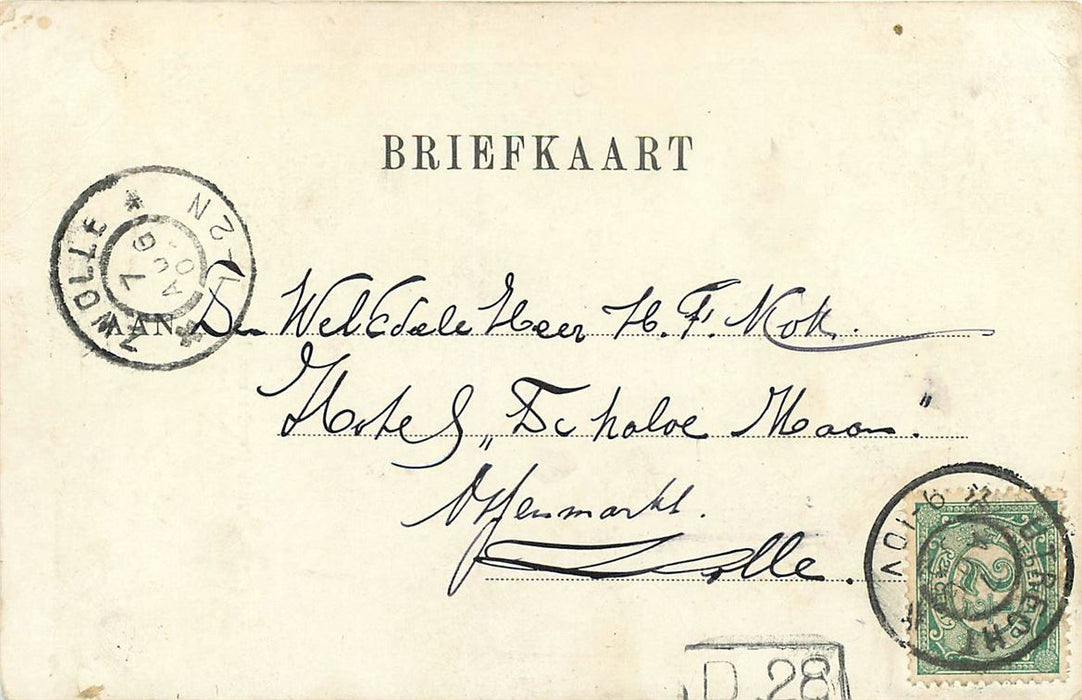 BRIEFKAART
ZWOLLE
7 AUG
1-2N
AAN Den WelEdele Heer H. F. Kok.
Hotel „De halve Maan."
Ossenmarkt.
Zwolle.
UTRECHT
9-10V
2½
D.28